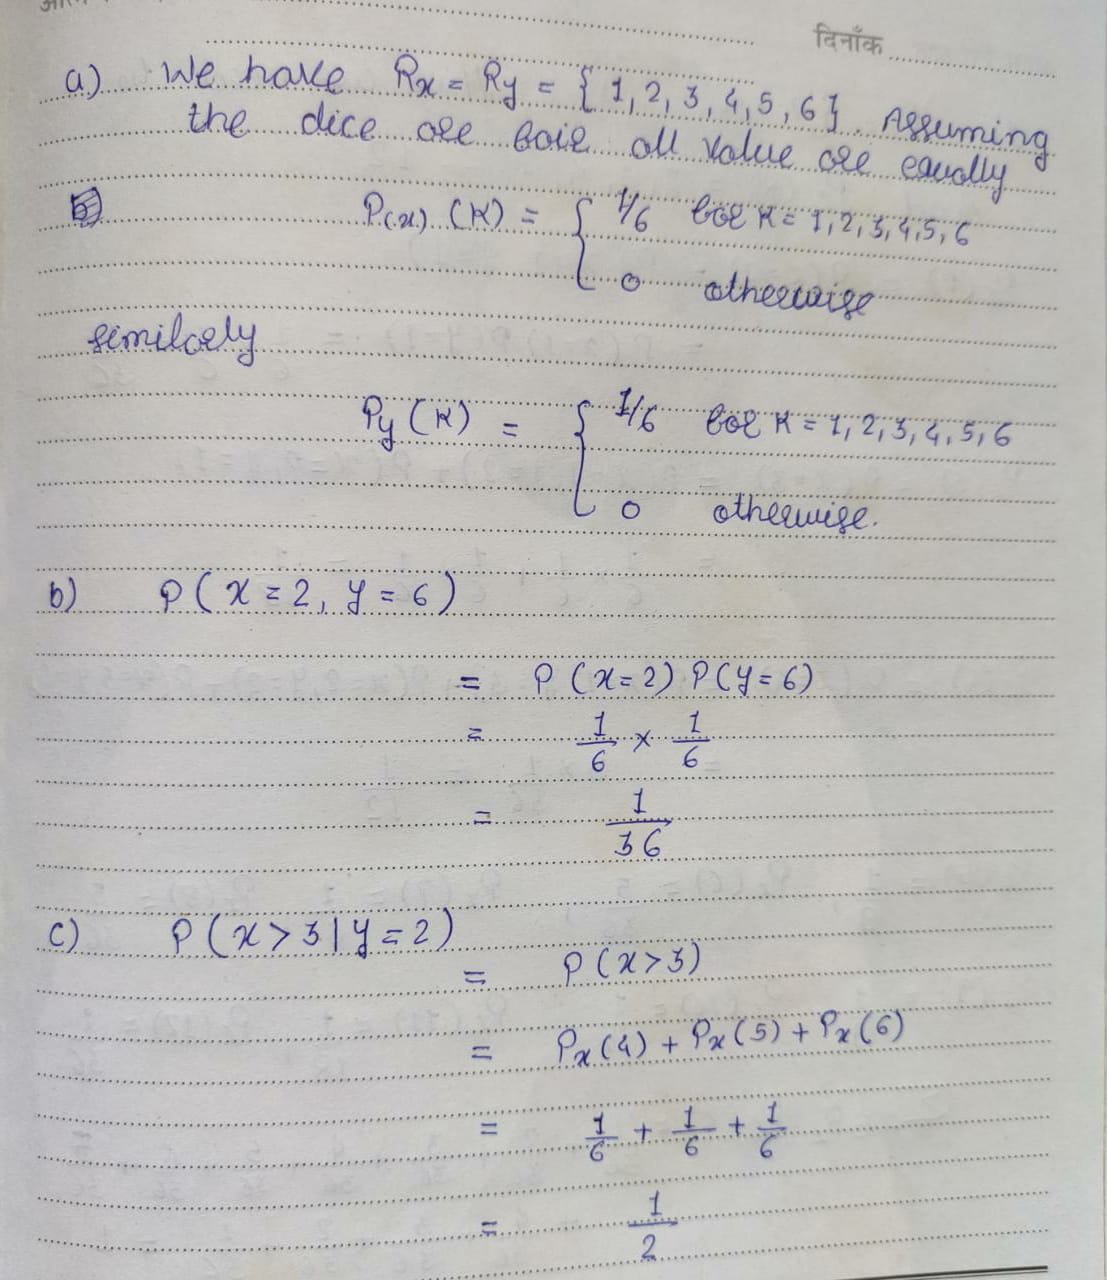 दिनाँक
a) We have Rx = Ry = { 1, 2, 3, 4, 5, 6 }. Assuming
the dice are fair all value are equally
P(x) (K) = { 1/6 for K = 1, 2, 3, 4, 5, 6
0 otherwise
similarly
Py (K) = { 1/6 for K = 1, 2, 3, 4, 5, 6
0 otherwise.
b) P ( x = 2, y = 6 )
= P (x = 2) P(y = 6)
= 1/6 × 1/6
= 1/36
c) P ( x > 3 | y = 2 )
= P ( x > 3 )
= Px (4) + Px (5) + Px (6)
= 1/6 + 1/6 + 1/6
= 1/2